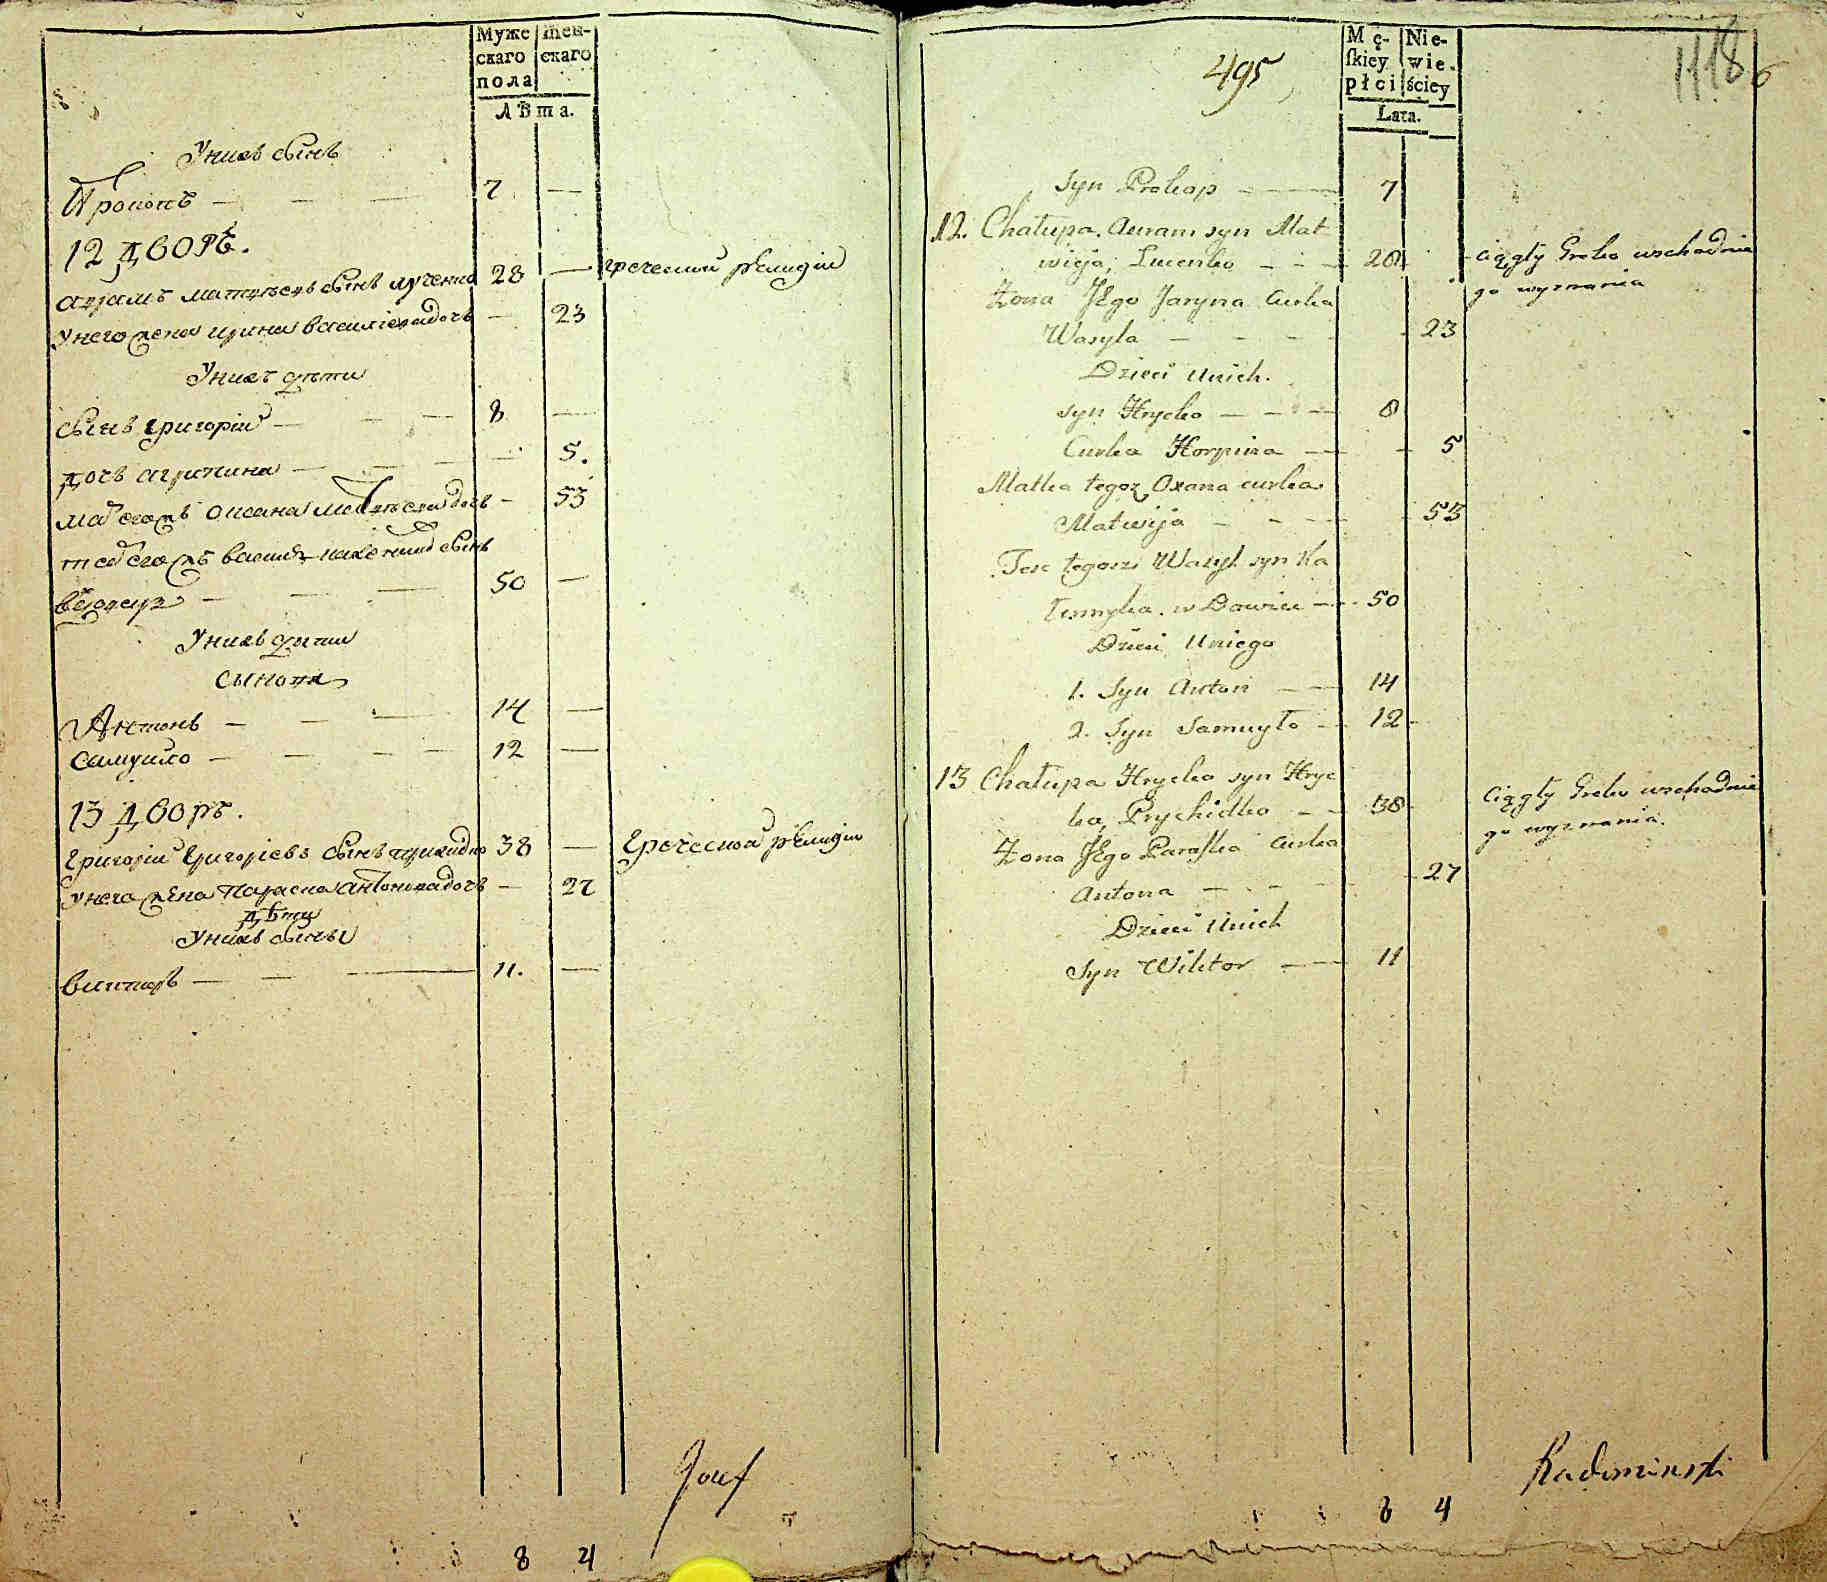 Муже скаго пола
жен- скаго
Лѣта.
Унихъ сынъ
Прокопъ — — — 7 —
12 дворъ.
Аврамъ Матвѣевъ сынъ Лученко 28 — греческой рѣлигiи
Унего жена Ирина Василiевадочь — 23
Унихъ дѣти
сынъ Григорiй — — — 8 —
дочь Агрипина — — — — 5.
мат егожъ Оксана Матвѣевадочь — 53
тесть егожъ Василь сынъ
50 —
Унихъ дѣти
сыновя
Антонъ — — — 14 —
Самуило — — — 12 —
13 дворъ.
Григорiй Григорiевъ сынъ 38 — Греческой рѣлигiи
Унего жена Параска Антоновадочь — 27
дѣти
Унихъ сыны
Викторъ — — — 11. —
Josef
8 4
495
1118 6
Mę- ſkiey płci
Nie- wie- ściey
Lata.
Syn Prokop — — 7
12. Chałupa. Awram syn Mat
wieja, Lucenko — — — 28 Ciągły Greko wschodnie
go wyznania
Żona Jego Jaryna Curka
Wasyla — — — — 23
Dzieci Unich.
Syn Hryćko — — — 8
Curka Horpina — — 5
Matka tegoz Oxana curka
Matwija — — — — 53
Tesc tegorz Wasyl syn Ka
lennyka. wDowiec — — 50
Dzieci Uniego
1. Syn Anton — — 14
2. Syn Samuyło — 12 —
13 Chałupa Hryćko syn Hryc
ka, Prychidko — — 38 Ciągły Greko wschodnie
go wyznania.
Żona Jego Paraſka Curka
Antona — — — — 27
Dzieci Unich
Syn Wiktor — — 11
Radziminski
8 4